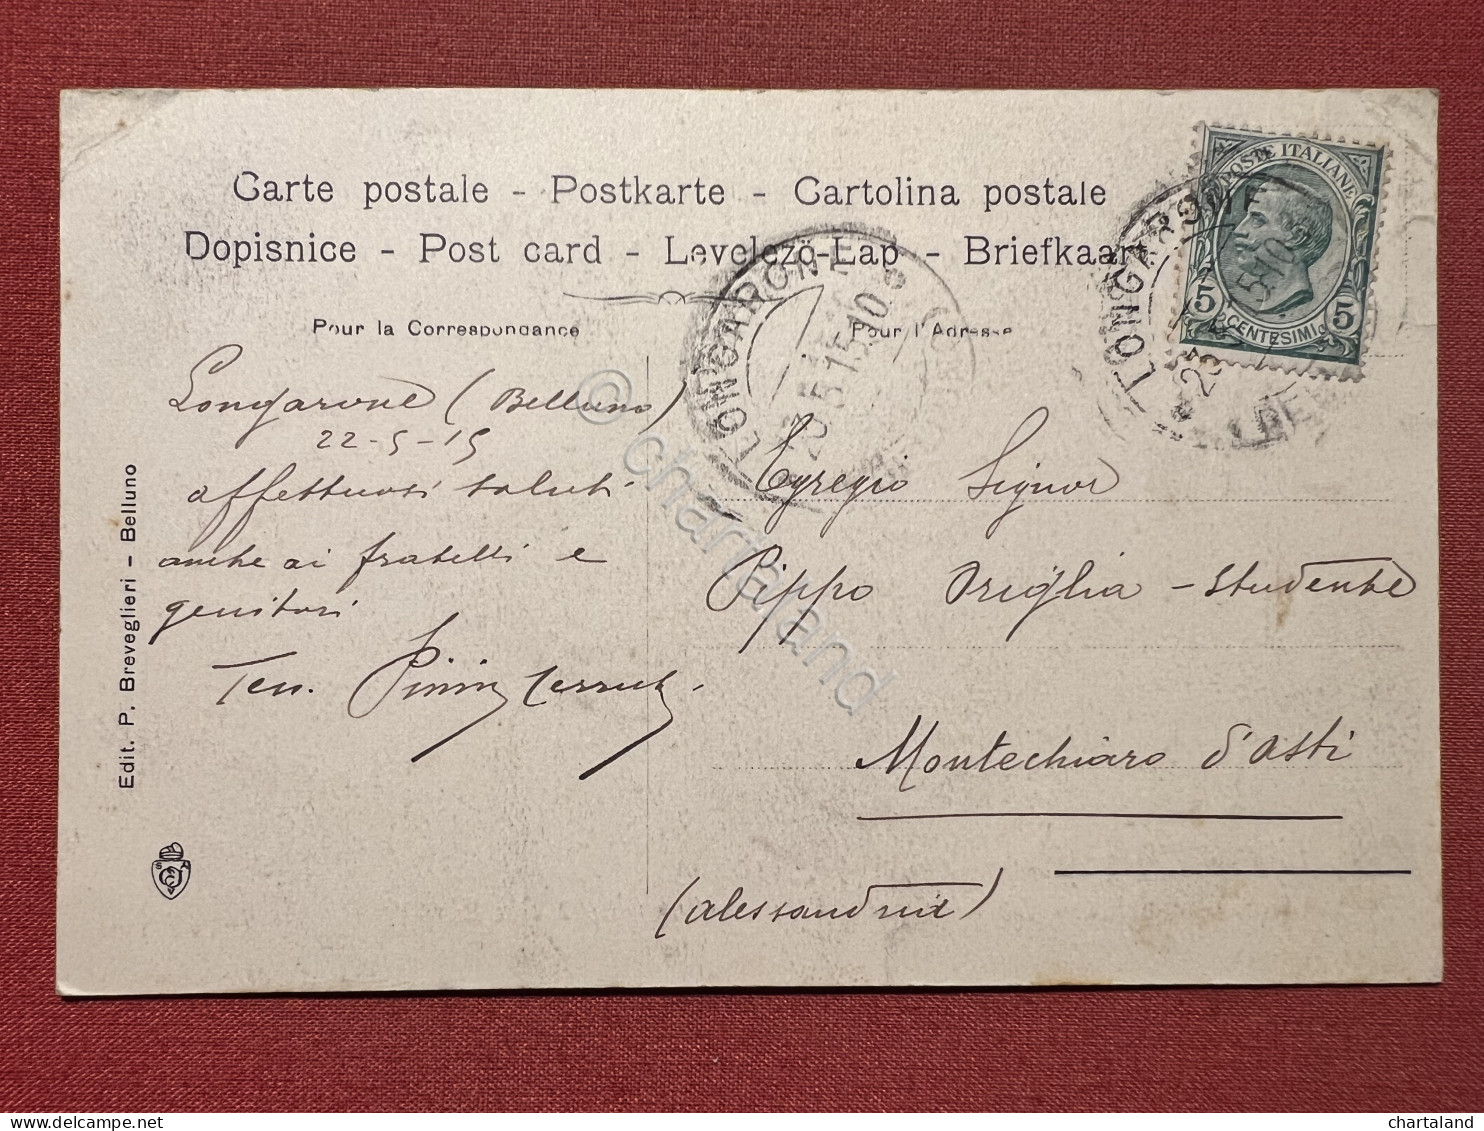 Carte postale - Postkarte - Cartolina postale
Dopisnice - Post card - Levelező-Lap - Briefkaart
Pour la Correspondance
Pour l'Adresse
POSTE ITALIANE
5 CENTESIMI 5
LONGARONE
23.5.15.10
LONGARONE
23 5 15.10
Longarone (Belluno)
22-5-15
affettuosi saluti
anche ai fratelli e
genitori
Ten. Pinin
Egregio Signor
Pippo Origlia - Studente
Montechiaro d'Asti
(Alessandria)
Edit. P. Breveglieri - Belluno
© chartaland
delcampe.net
chartaland